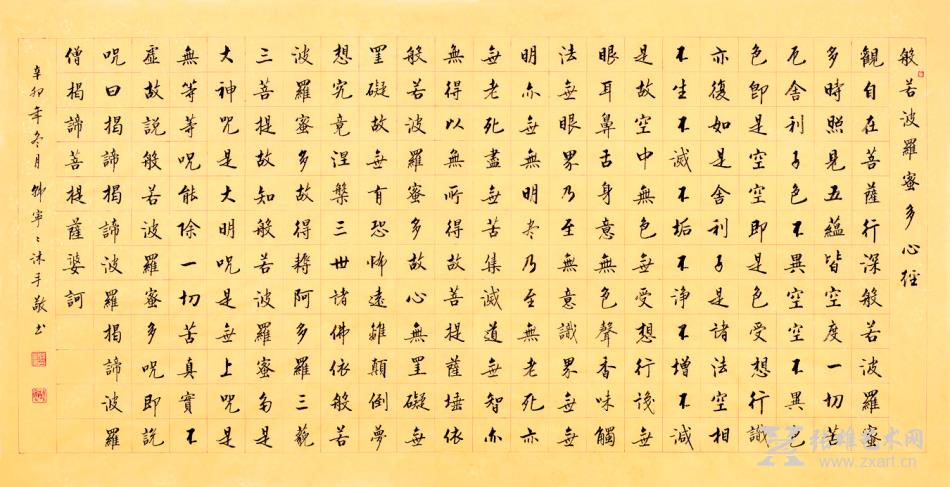 般若波羅蜜多心經
觀自在菩薩行深般若波羅蜜
多時照見五蘊皆空度一切苦
厄舍利子色不異空空不異色
色即是空空即是色受想行識
亦復如是舍利子是諸法空相
不生不滅不垢不淨不增不減
是故空中無色無受想行識無
眼耳鼻舌身意無色聲香味觸
法無眼界乃至無意識界無無
明亦無無明盡乃至無老死亦
無老死盡無苦集滅道無智亦
無得以無所得故菩提薩埵依
般若波羅蜜多故心無罣礙無
罣礙故無有恐怖遠離顛倒夢
想究竟涅槃三世諸佛依般若
波羅蜜多故得耨阿多羅三藐
三菩提故知般若波羅蜜多是
大神咒是大明咒是無上咒是
無等等咒能除一切苦真實不
虛故說般若波羅蜜多咒即說
咒曰揭諦揭諦波羅揭諦波羅
僧揭諦菩提薩婆訶
辛卯年冬月寧〻沐手敬书
张雄艺术网
www.zxart.cn